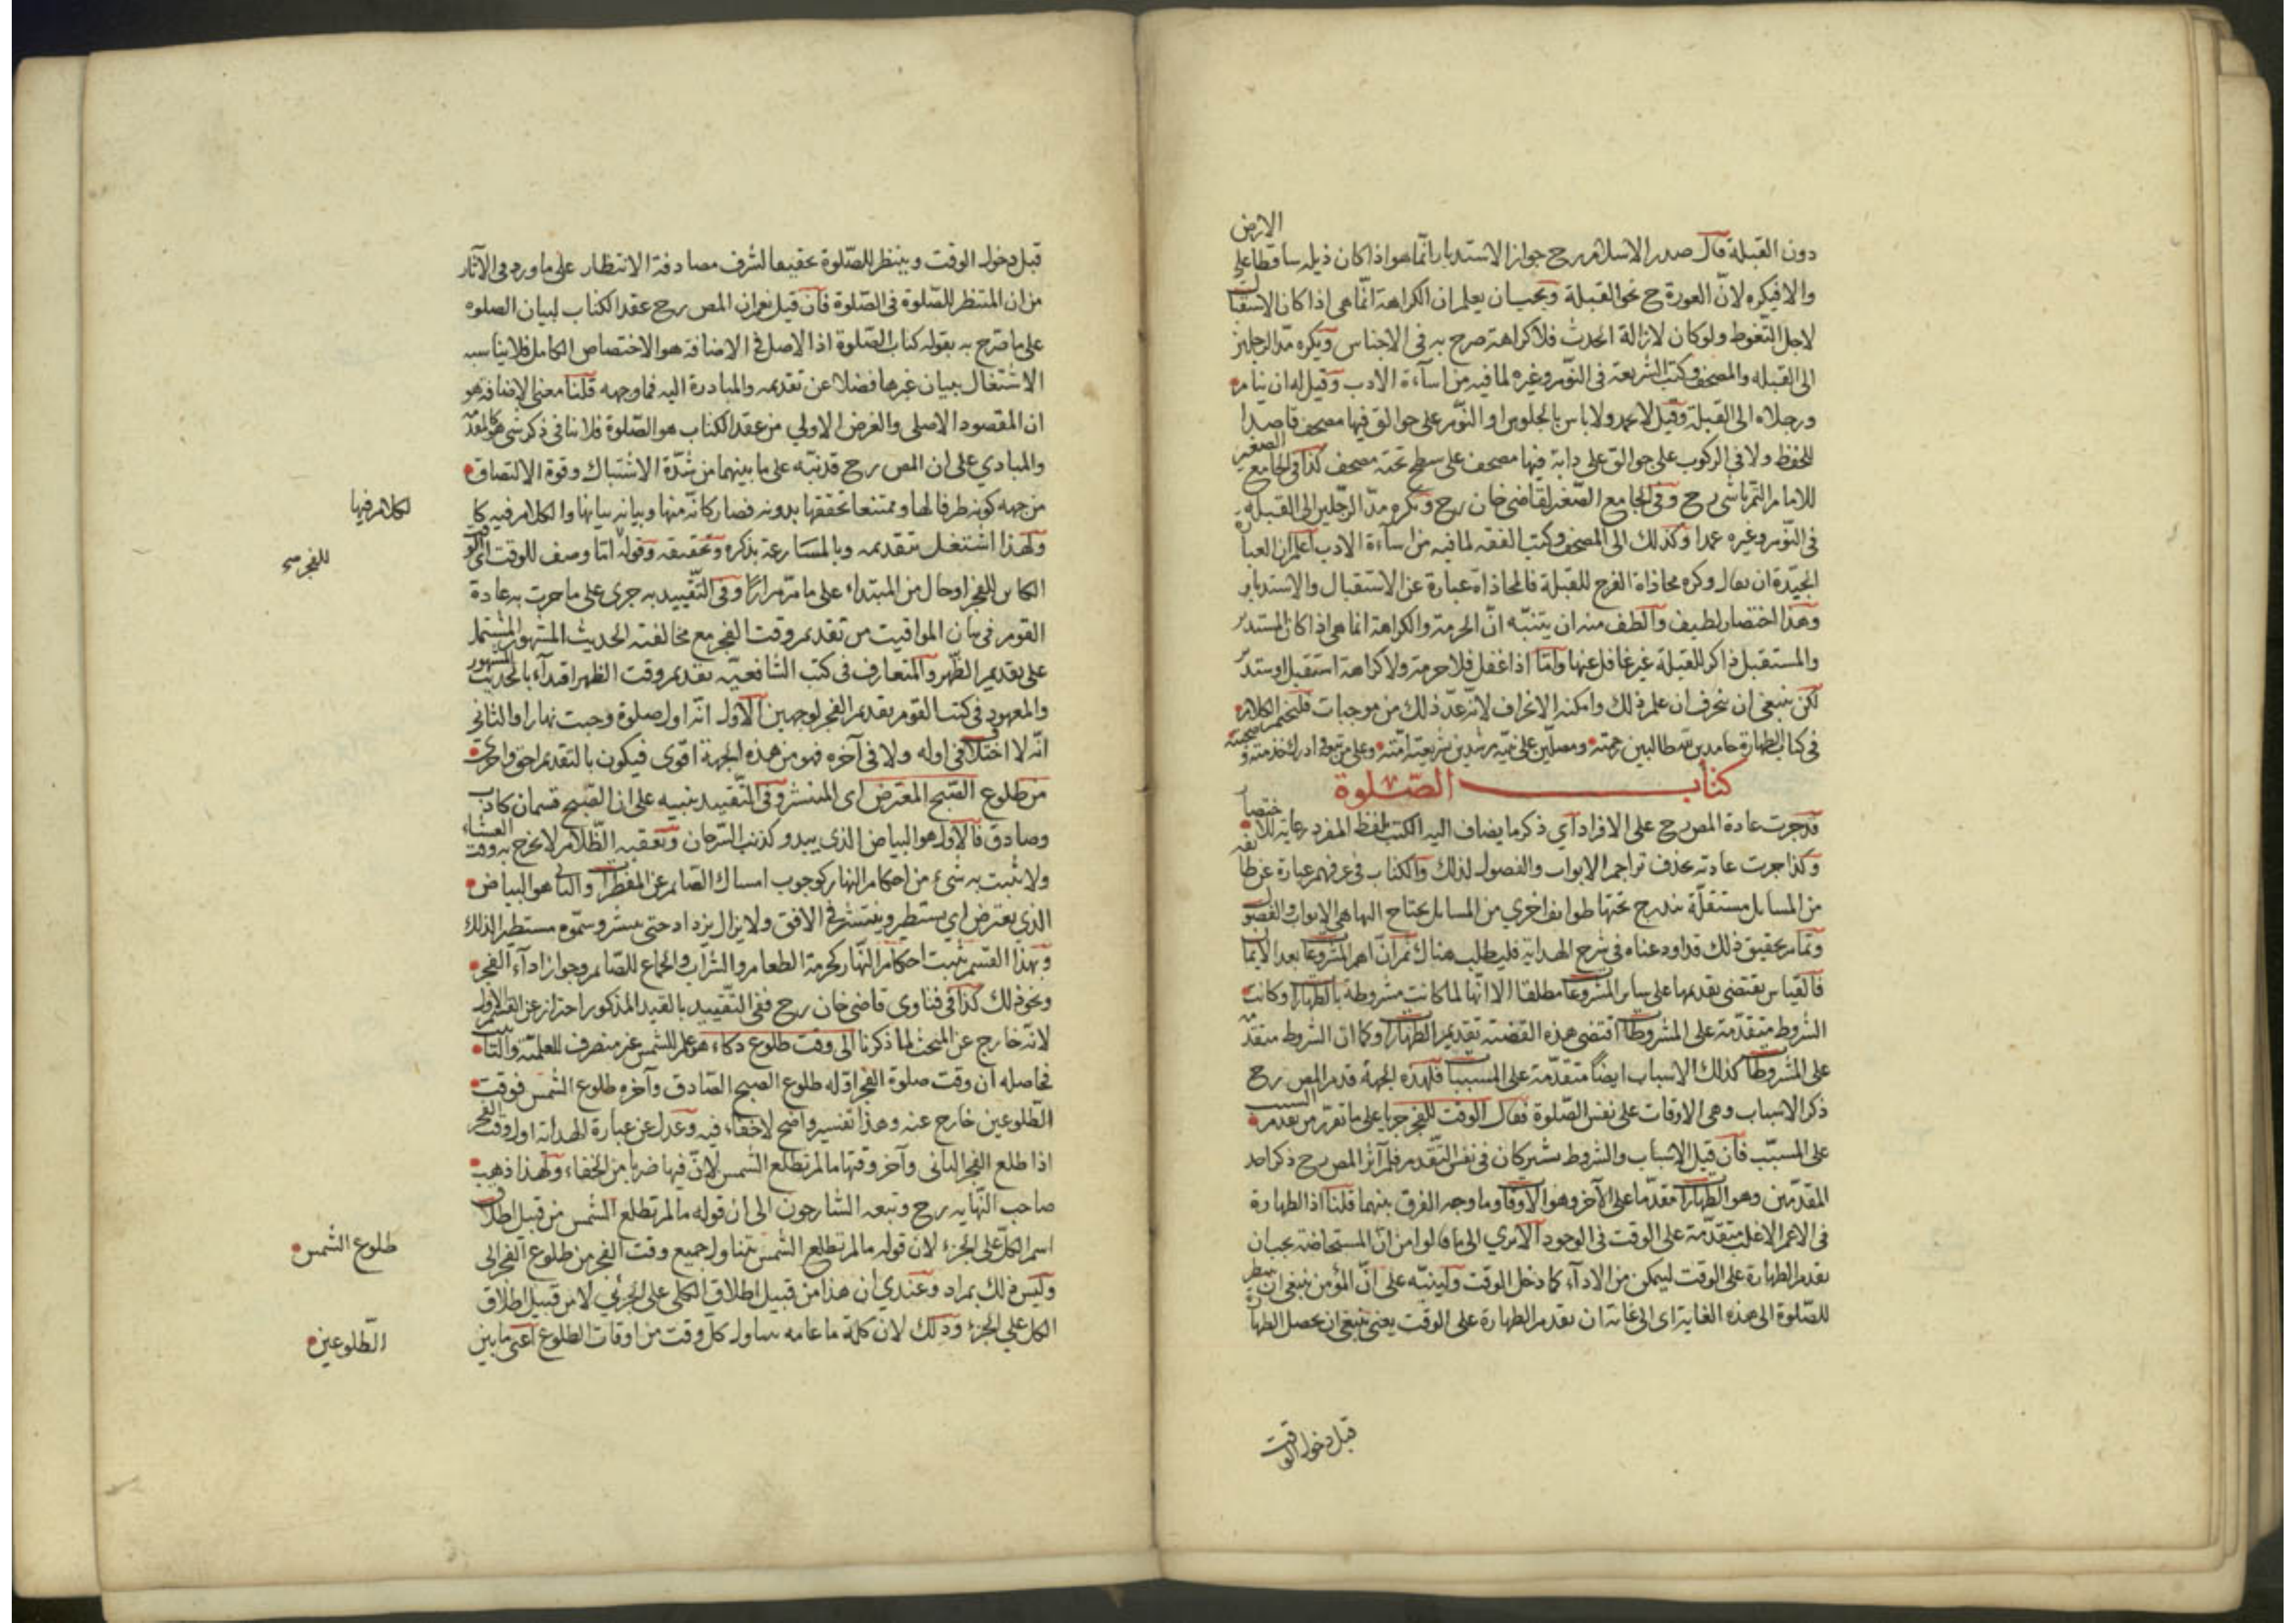 دون القبلة قال صدر الاسلام رح جواز الاستدبار انما هو اذا كان ذيله ساقطا على الارض
والا فيكره لان العورة ح نحو القبلة ويجب ان يعلم ان الكراهة انما هى اذا كان الاستقبال
لاجل التغوط ولو كان لازالة الحدث فلا كراهة صرح به فى الاجناس ويكره مد الرجلين
الى القبلة والمصحف وكتب الشريعة فى النوم وغيره لما فيه من اساءة الادب وقيل له ان ينام
ورجلاه الى القبلة وقيل لا عمد ولا باس بالجلوس او النوم على جوالق فيها مصحف قاصدا
للحفظ ولا فى الركوب على جوالق على دابة فيها مصحف على سطح تحته مصحف كذا فى الجامع الصغير
للامام التمرتاشى رح وفى الجامع الصغير لقاضى خان رح ويكره مد الرجلين الى القبلة
فى النوم وغيره عمدا وكذلك الى المصحف وكتب الفقه لما فيه من اساءة الادب اعلم ان العبارة
الجيدة ان يقال وكره محاذاة الفرج للقبلة فالمحاذاة عبارة عن الاستقبال والاستدبار
وهذا اختصار لطيف والطف منه ان يتنبه ان الحرمة والكراهة انما هى اذا كان المستدبر
والمستقبل ذاكر للقبلة غير غافل عنها واما اذا غفل فلا حرمة ولا كراهة استقبل او ستدبر
لكن ينبغى ان ينحرف ان علم ذلك وامكنه الانحراف لانه عد ذلك من موجبات فليختم الكلام
فى كتاب الطهارة حامدين لله طالبين رحمته ومصلين على نبيه مرشدين شريعته امته وعلى من تبعه فى ادراك خدمته و صحبته
كتاب الصلوة
قد جرت عادة المص رح على الافراد اى ذكر ما يضاف اليه الكتب بلفظ المفرد رعاية للاختصار
وكذا جرت عادته بحذف تراجم الابواب والفصول لذلك والكتاب فى عرفهم عبارة عن طائفة
من المسائل مستقلة تندرج تحتها طوائف اخرى من المسائل يحتاج اليها هى الابواب والفصول
وتمام تحقيق ذلك قد اودعناه فى شرح الهداية فليطلب هناك ثم ان اهم المشروعات بعد الايمان
فالقياس يقتضى تقديمها على سائر المشروعات مطلقا الا انها لما كانت مشروطة بالطهارة وكانت
الشروط متقدمة على المشروطات اقتضى هذه القضية تقديم الطهارة وكما ان الشروط متقدمة
على المشروطات كذلك الاسباب ايضا متقدمة على المسببات فلهذه الجهة قدم المص رح
ذكر الاسباب وهى الاوقات على نفس الصلوة فقال الوقت للفجر جريا على ما تقرر من تقدم السبب
على المسبب فان قيل الاسباب والشروط مشتركان فى نفس التقدم فلم آثر المص رح ذكر احد
المقدمين وهو الطهارة مقدما على الآخر وهو الاوقات وما وجه الفرق بينهما قلنا اذ الطهارة
فى الاعم الاغلب متقدمة على الوقت فى الوجود الا يرى الى ما قالوا من ان المستحاضة يجب ان
تقدم الطهارة على الوقت ليمكن من الاداء كما دخل الوقت ولينبه على ان المؤمن ينبغى ان ينتظر
للصلوة الى هذه الغاية اى الى غاية ان تقدم الطهارة على الوقت يعنى ينبغى ان يحصل الطهارة
قبل دخول الوقت
قبل دخول الوقت وينتظر للصلوة تحقيقا لشرف مصادفة الانتظار على ما ورد فى الآثار
من ان المنتظر للصلوة فى الصلوة فان قيل نعم ان المص رح عقد الكتاب لبيان الصلوه
على ما صرح به بقوله كتاب الصلوة اذ الاصل فى الاضافة هو الاختصاص الكامل فلا يناسبه
الاشتغال ببيان غيرها فضلا عن تقديمه والمبادرة اليه فما وجهه قلنا معنى الاضافة هو
ان المقصود الاصلى والغرض الاولي من عقد الكتاب هو الصلوة فلا ينافى ذكر شى هو كالمقدمة
والمبادي على ان المص رح قد نبه على ما بينهما من شدة الاشتباك وقوة الالتصاق
من جهه كونه ظرفا لها وممتنعا تحققها بدونه فصار كانه منها وبيانه بيانها والكلام فيه كا
لكلام فيها
ولهذا اشتغل بتقديمه وبالمسارعة بذكره وتحقيقه وقوله اما وصف للوقت اى الوقت
للفجر
الكائن للفجر او حال من المبتداء على ما مر مرارا وفى التقييد به جرى على ما جرت به عادة
القوم فى بيان المواقيت من تقديم وقت الفجر مع مخالفته الحديث المشهور المشتمل
على تقديم الظهر والمتعارف فى كتب الشافعية تقديم وقت الظهر اقتداء بالحديث المشهور
والمعهود فى كتب القوم تقديم الفجر لوجهين الاول انه اول صلوة وجبت نهارا والثانى
انه لا اختلاف فى اوله ولا فى آخره فهو من هذه الجهة اقوى فيكون بالتقديم احق واحرى
من طلوع الصبح المعترض اى المنتشر وفى التقييد تنبيه على ان الصبح قسمان كاذب
وصادق فالاول هو البياض الذى يبدو كذنب السرحان ويعقبه الظلام لا يخرج به وقت العشاء
ولا يثبت به شىء من احكام النهار كوجوب امساك الصائم عن المفطرات والثانى هو البياض
الذى يعترض اى يستطير وينتشر فى الافق ولا يزال يزداد حتى ينتشر وسموه مستطيرا لذلك
وبهذا القسم يثبت احكام النهار كحرمة الطعام والشراب والجماع للصائم وجواز اداء الفجر
ونحو ذلك كذا فى فتاوى قاضى خان رح ففى التقييد بالقيد المذكور احتراز عن القسم الاول
لانه خارج عن المبحث لما ذكرنا الى وقت طلوع ذكاء هو علم للشمس غير منصرف للعلمية والتانيث
فحاصله ان وقت صلوة الفجر اوله طلوع الصبح الصادق وآخره طلوع الشمس فوقت
الطلوعين خارج عنه وهذا تفسير واضح لاخفاء فيه وعدل عن عبارة الهداية اول وقت الفجر
اذا طلع الفجر الثانى وآخر وقتها ما لم تطلع الشمس لان فيها ضربا من الخفاء ولهذا ذهب
صاحب النهاية رح وتبعه الشارحون الى ان قوله ما لم تطلع الشمس من قبيل اطلاق
اسم الكل على الجزء لان قوله ما لم تطلع الشمس يتناول جميع وقت الفجر من طلوع الفجر الى
طلوع الشمس
وليس ذلك بمراد وعندي ان هذا من قبيل اطلاق الكلى على الجزئى لا من قبيل اطلاق
الكل على الجزء وذلك لان كلمة ما عامه يتناول كل وقت من اوقات الطلوع اعنى ما بين
الطلوعين